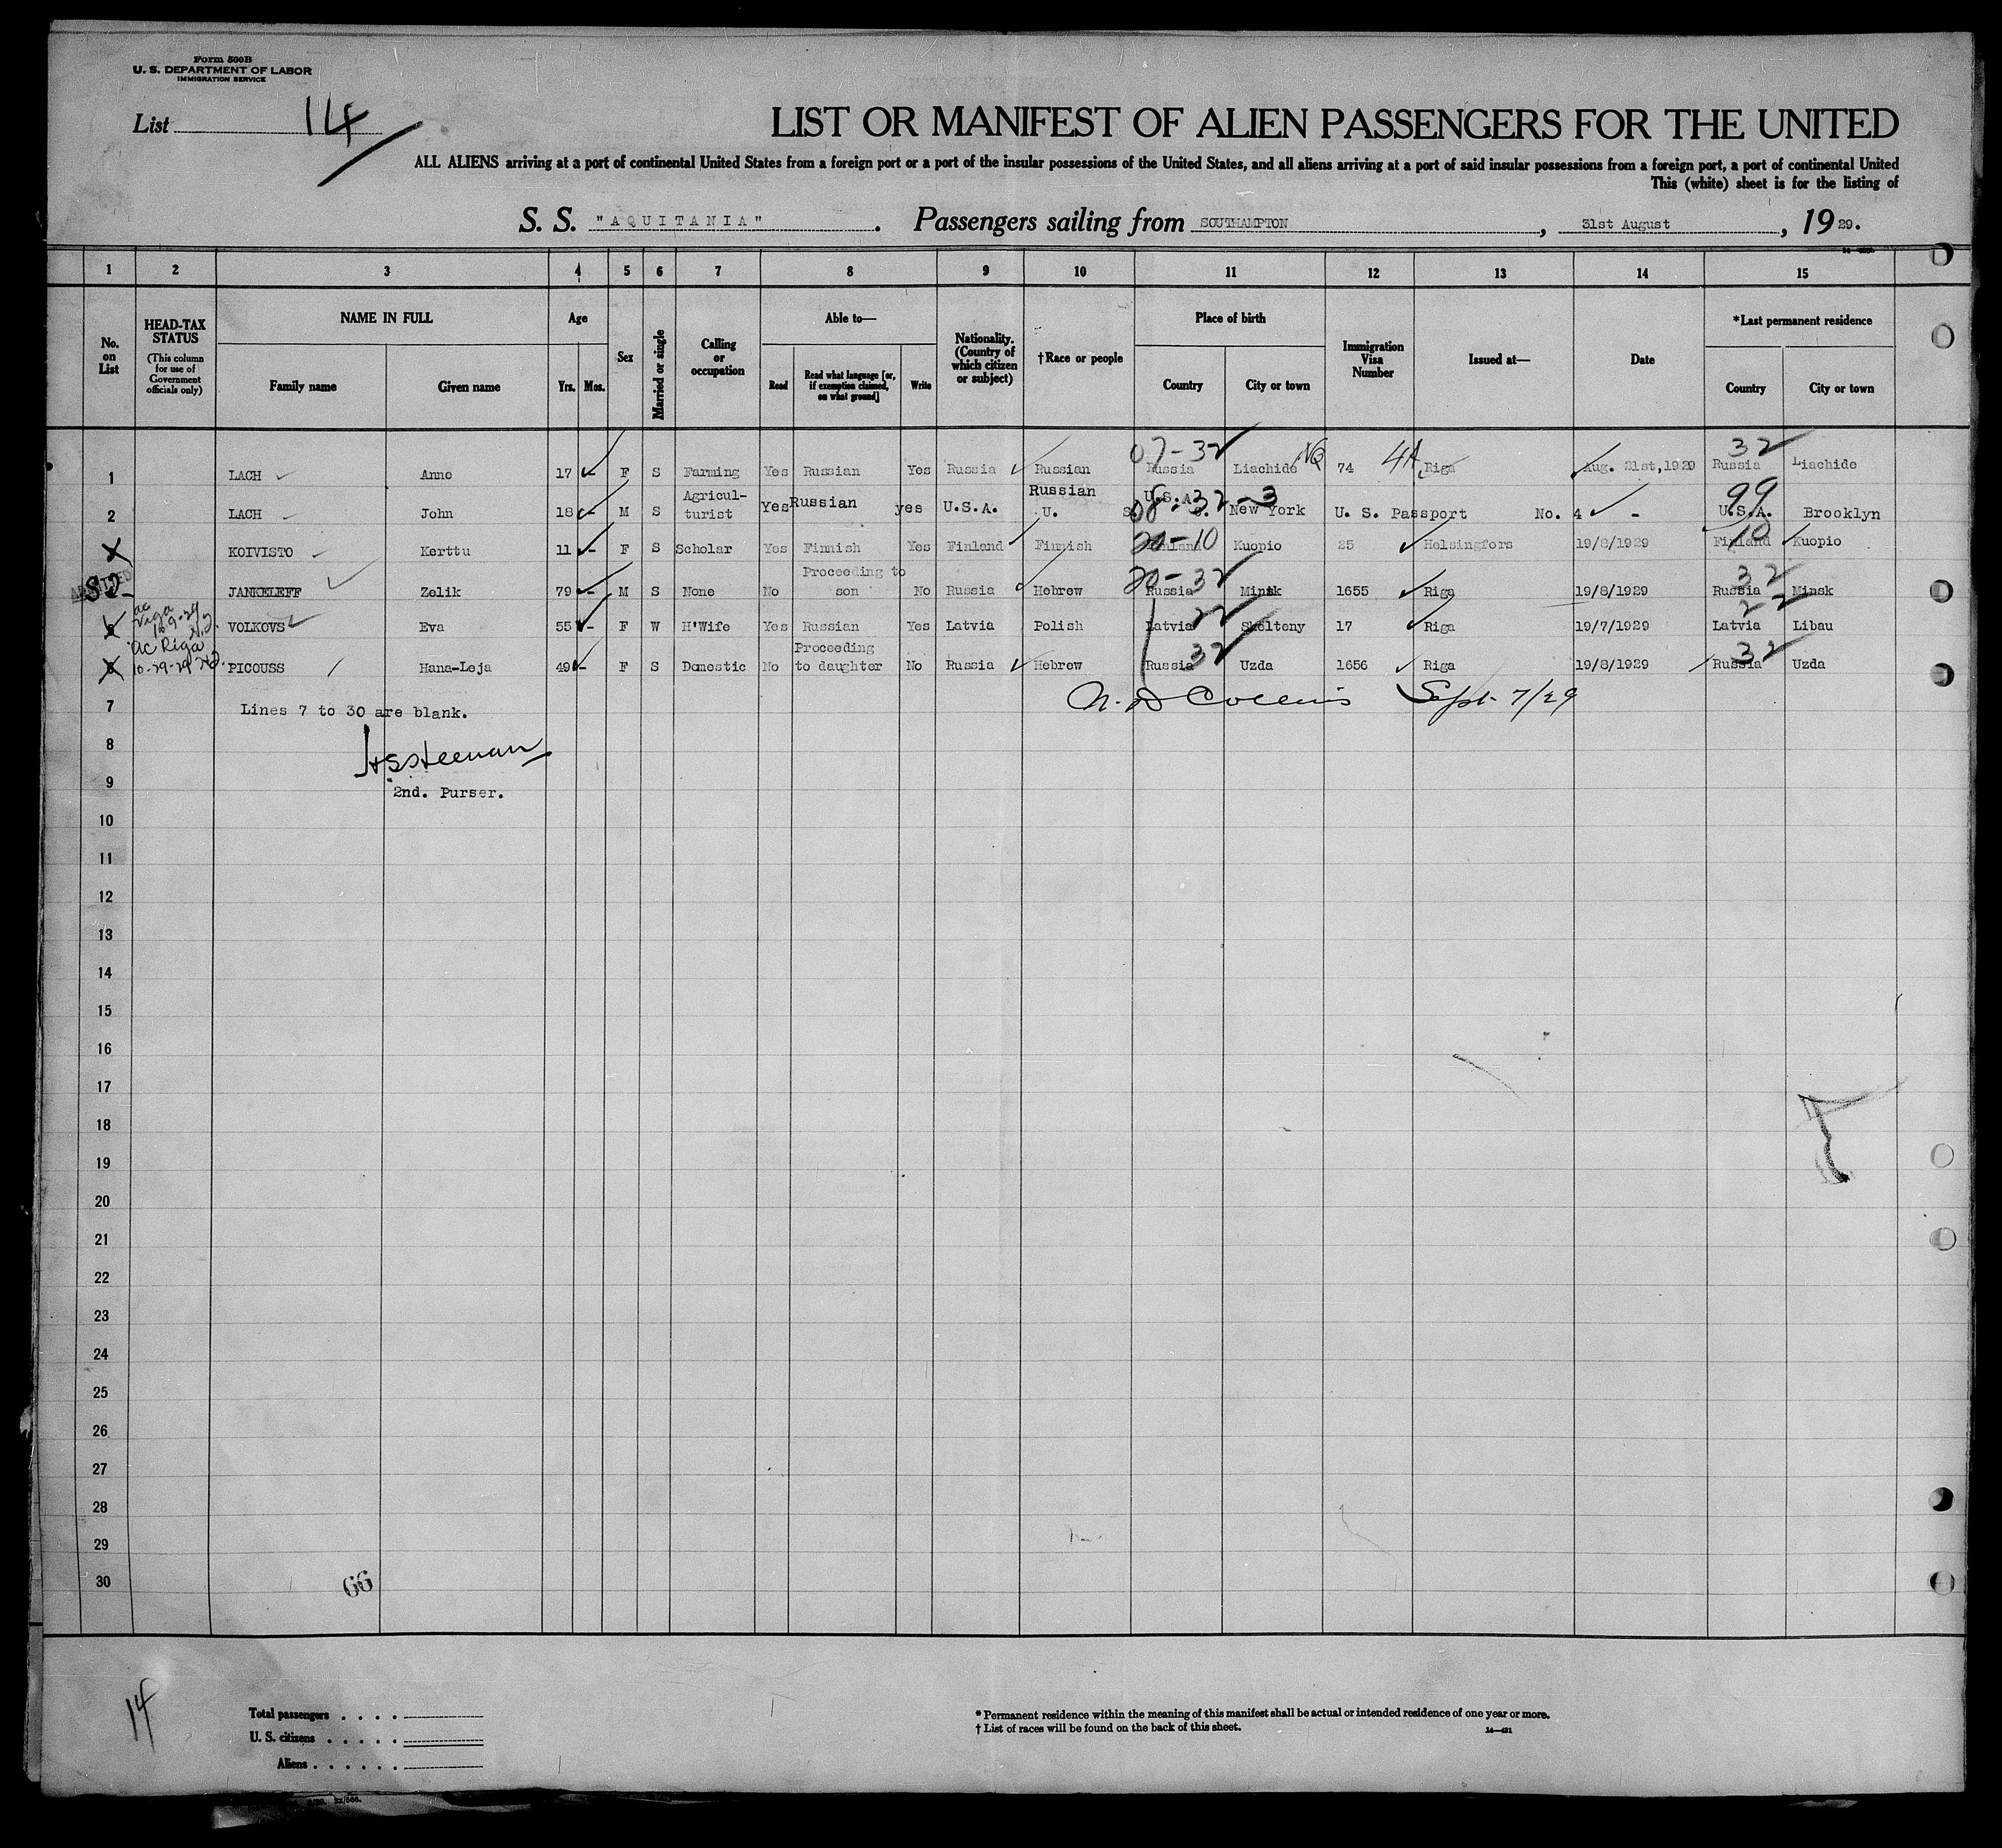 Form 500B
U. S. DEPARTMENT OF LABOR
IMMIGRATION SERVICE
List 14
LIST OR MANIFEST OF ALIEN PASSENGERS FOR THE UNITED
ALL ALIENS arriving at a port of continental United States from a foreign port or a port of the insular possessions of the United States, and all aliens arriving at a port of said insular possessions from a foreign port, a port of continental United
This (white) sheet is for the listing of
S. S. "AQUITANIA". Passengers sailing from SOUTHAMPTON, 31st August, 1929.
1 2 3 4 5 6 7 8 9 10 11 12 13 14 15
No. on List
HEAD-TAX STATUS (This column for use of Government officials only)
NAME IN FULL Family name Given name
Age Yrs. Mos.
Sex
Married or single
Calling or occupation
Able to— Read Read what language [or, if exemption claimed, on what ground] Write
Nationality. (Country of which citizen or subject)
†Race or people
Place of birth Country City or town
Immigration Visa Number
Issued at—
Date
*Last permanent residence Country City or town
07-32 NQ 4A 32
1 LACH Anne 17 - F S Farming Yes Russian Yes Russia Russian Russia Liachide 74 Riga Aug. 21st,1929 Russia Liachide
08-32-3 99
2 LACH John 18 - M S Agricul-turist Yes Russian yes U.S.A. Russian U. S. U.S.A. New York U. S. Passport No. 4 - U.S.A. Brooklyn
20-10 10
KOIVISTO Kerttu 11 - F S Scholar Yes Finnish Yes Finland Finnish Finland Kuopio 25 Helsingfors 19/8/1929 Finland Kuopio
20-32 32
JANKELEFF Zelik 79 - M S None No Proceeding to son No Russia Hebrew Russia Minsk 1655 Riga 19/8/1929 Russia Minsk
ac Riga 22 22
VOLKOVS Eva 55 - F W H'Wife Yes Russian Yes Latvia Polish Latvia Skelteny 17 Riga 19/7/1929 Latvia Libau
ac Riga 10-29-29 32 32
PICOUSS Hana-Leja 49 - F S Domestic No Proceeding to daughter No Russia Hebrew Russia Uzda 1656 Riga 19/8/1929 Russia Uzda
Collins Sept 7/29
7 Lines 7 to 30 are blank.
8
9 2nd. Purser.
10
11
12
13
14
15
16
17
18
19
20
21
22
23
24
25
26
27
28
29
30
66
14
Total passengers . . . .
U. S. citizens . . . . .
Aliens . . . . . .
* Permanent residence within the meaning of this manifest shall be actual or intended residence of one year or more.
† List of races will be found on the back of this sheet.